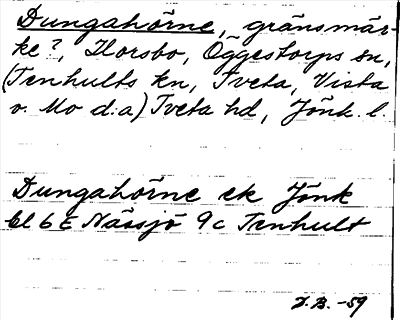 Dungahörne, gränsmär-
ke?, Horsbo, Öggestorps sn,
(Tenhults kn, Tveta, Vista
o. Mo d:a) Tveta hd, Jönk. l.
Dungahörne ek Jönk
bl 6E Nässjö 9c Tenhult
B. -59